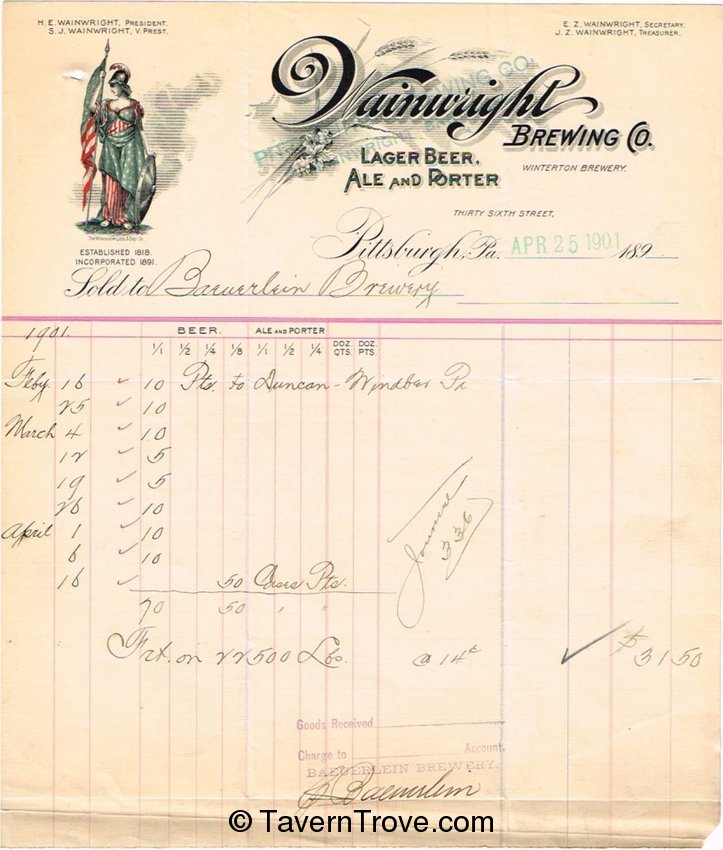 H. E. WAINWRIGHT, PRESIDENT.
S. J. WAINWRIGHT, V. PREST.
E. Z. WAINWRIGHT, SECRETARY.
J. Z. WAINWRIGHT, TREASURER.
BREWING CO
Wainwright
BREWING CO.
LAGER BEER,
ALE AND PORTER
WINTERTON BREWERY.
THIRTY SIXTH STREET,
Pittsburgh, Pa. APR 25 1901 189
ESTABLISHED 1818.
INCORPORATED 1891.
Sold to Baeuerlein Brewery
1901. BEER. ALE AND PORTER
1/1 1/2 1/4 1/8 1/1 1/2 1/4 DOZ. QTS. DOZ. PTS.
Feby 16 10 Pts. to Duncan - Windber Pa
25 10
March 4 10
12 5
19 5
26 10
April 1 10
6 10
16 50 Pts.
70 50 " "
Journal
336
Frt. on 22500 Lbs. @ 14¢ $ 31 50
Goods Received
Charge to Account.
BAEUERLEIN BREWERY.
Baeuerlein
© TavernTrove.com